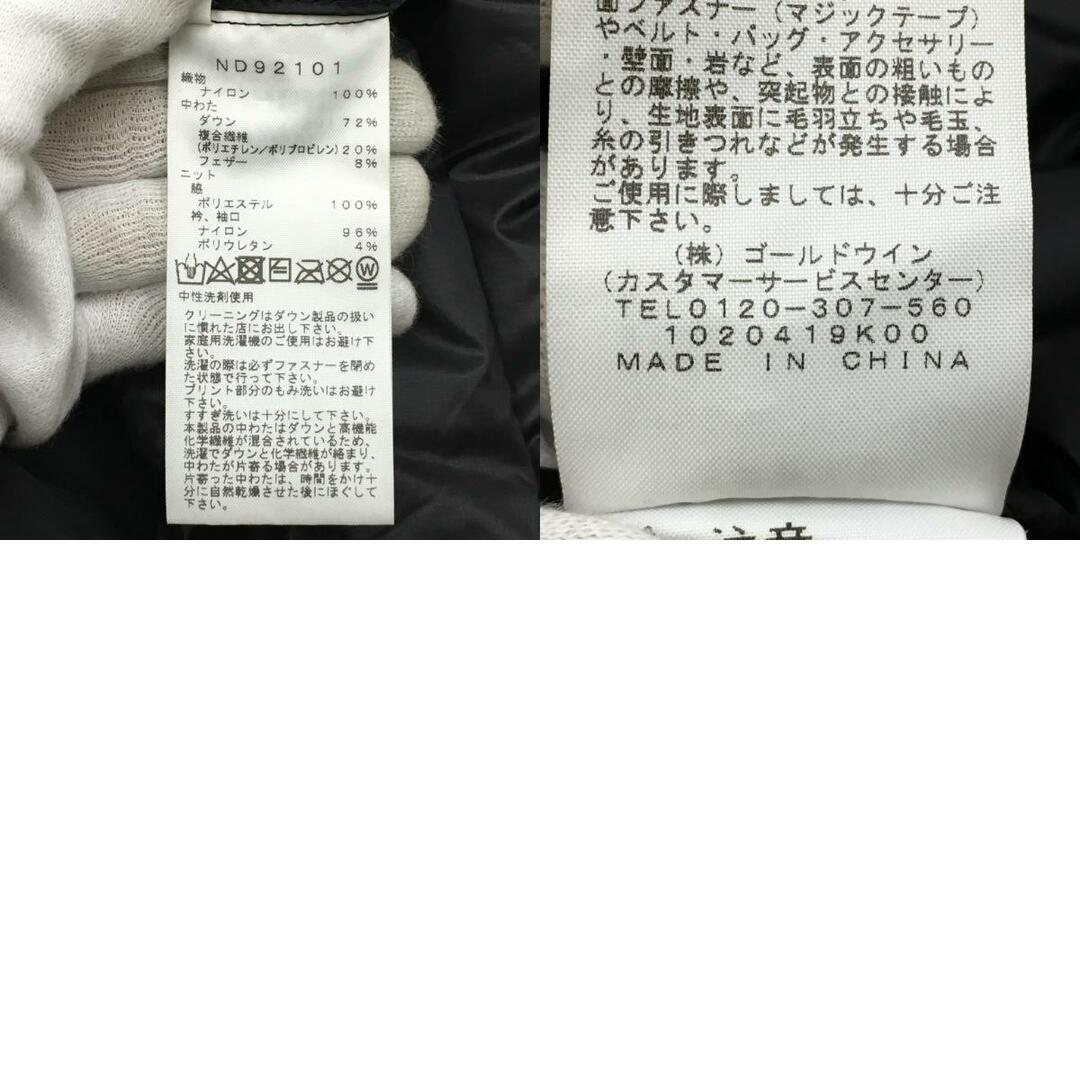 ND92101
織物
ナイロン 100%
中わた
ダウン 72%
複合繊維
(ポリエチレン/ポリプロピレン)20%
フェザー 8%
ニット
脇
ポリエステル 100%
衿、袖口
ナイロン 96%
ポリウレタン 4%
中性洗剤使用
クリーニングはダウン製品の扱い
に慣れた店にお出し下さい。
家庭用洗濯機のご使用はお避け下
さい。
洗濯の際は必ずファスナーを閉め
た状態で行って下さい。
プリント部分のもみ洗いはお避け
下さい。
すすぎ洗いは十分にして下さい。
本製品の中わたはダウンと高機能
化学繊維が混合されているため、
洗濯でダウンと化学繊維が絡まり、
中わたが片寄る場合があります。
片寄った中わたは、時間をかけ十
分に自然乾燥させた後にほぐして
下さい。
面ファスナー(マジックテープ)
やベルト・バッグ・アクセサリー
・壁面・岩など、表面の粗いもの
との摩擦や、突起物との接触によ
り、生地表面に毛羽立ちや毛玉、
糸の引きつれなどが発生する場合
があります。
ご使用に際しましては、十分ご注
意下さい。
(株)ゴールドウイン
(カスタマーサービスセンター)
TEL0120-307-560
1020419K00
MADE IN CHINA
注意